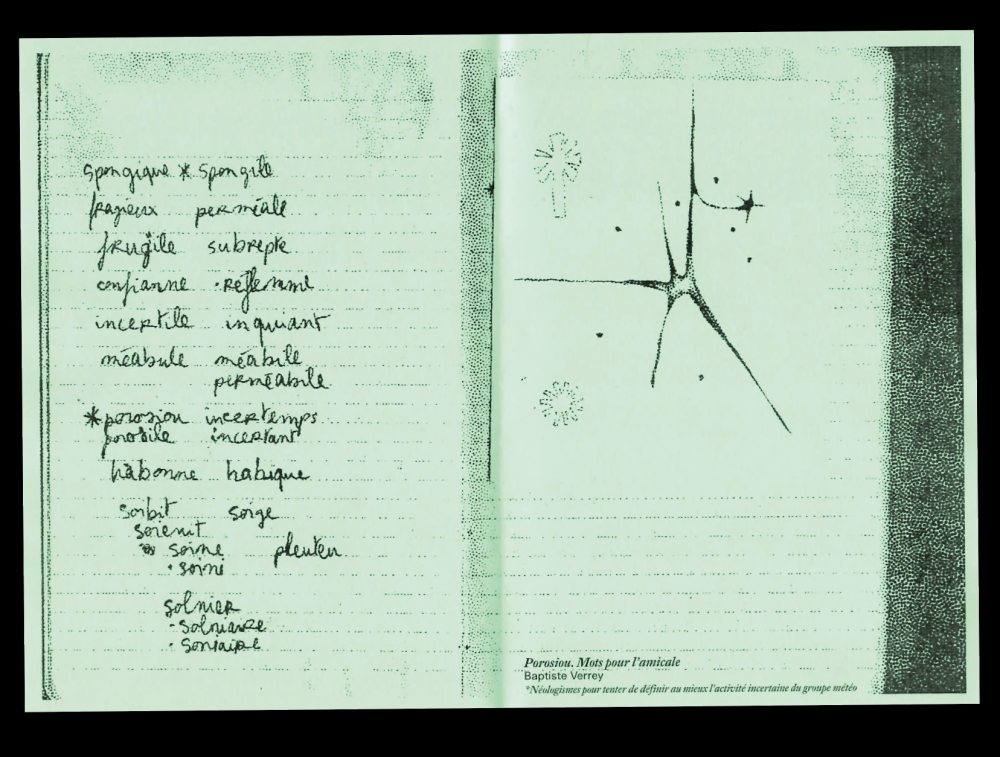 spongique * spongile
fragieux perméale
frugile subrepte
confianne · réflemmi
incertile inquiant
méabule méabile
perméabile
*porosiou incertemps
porosile incertant
habonne habique
sorbit sorge
sorenit
soine pleuteu
· soini
solnier
- solniaire
· soniaire
Porosiou. Mots pour l'amicale
Baptiste Verrey
*Néologismes pour tenter de définir au mieux l'activité incertaine du groupe météo